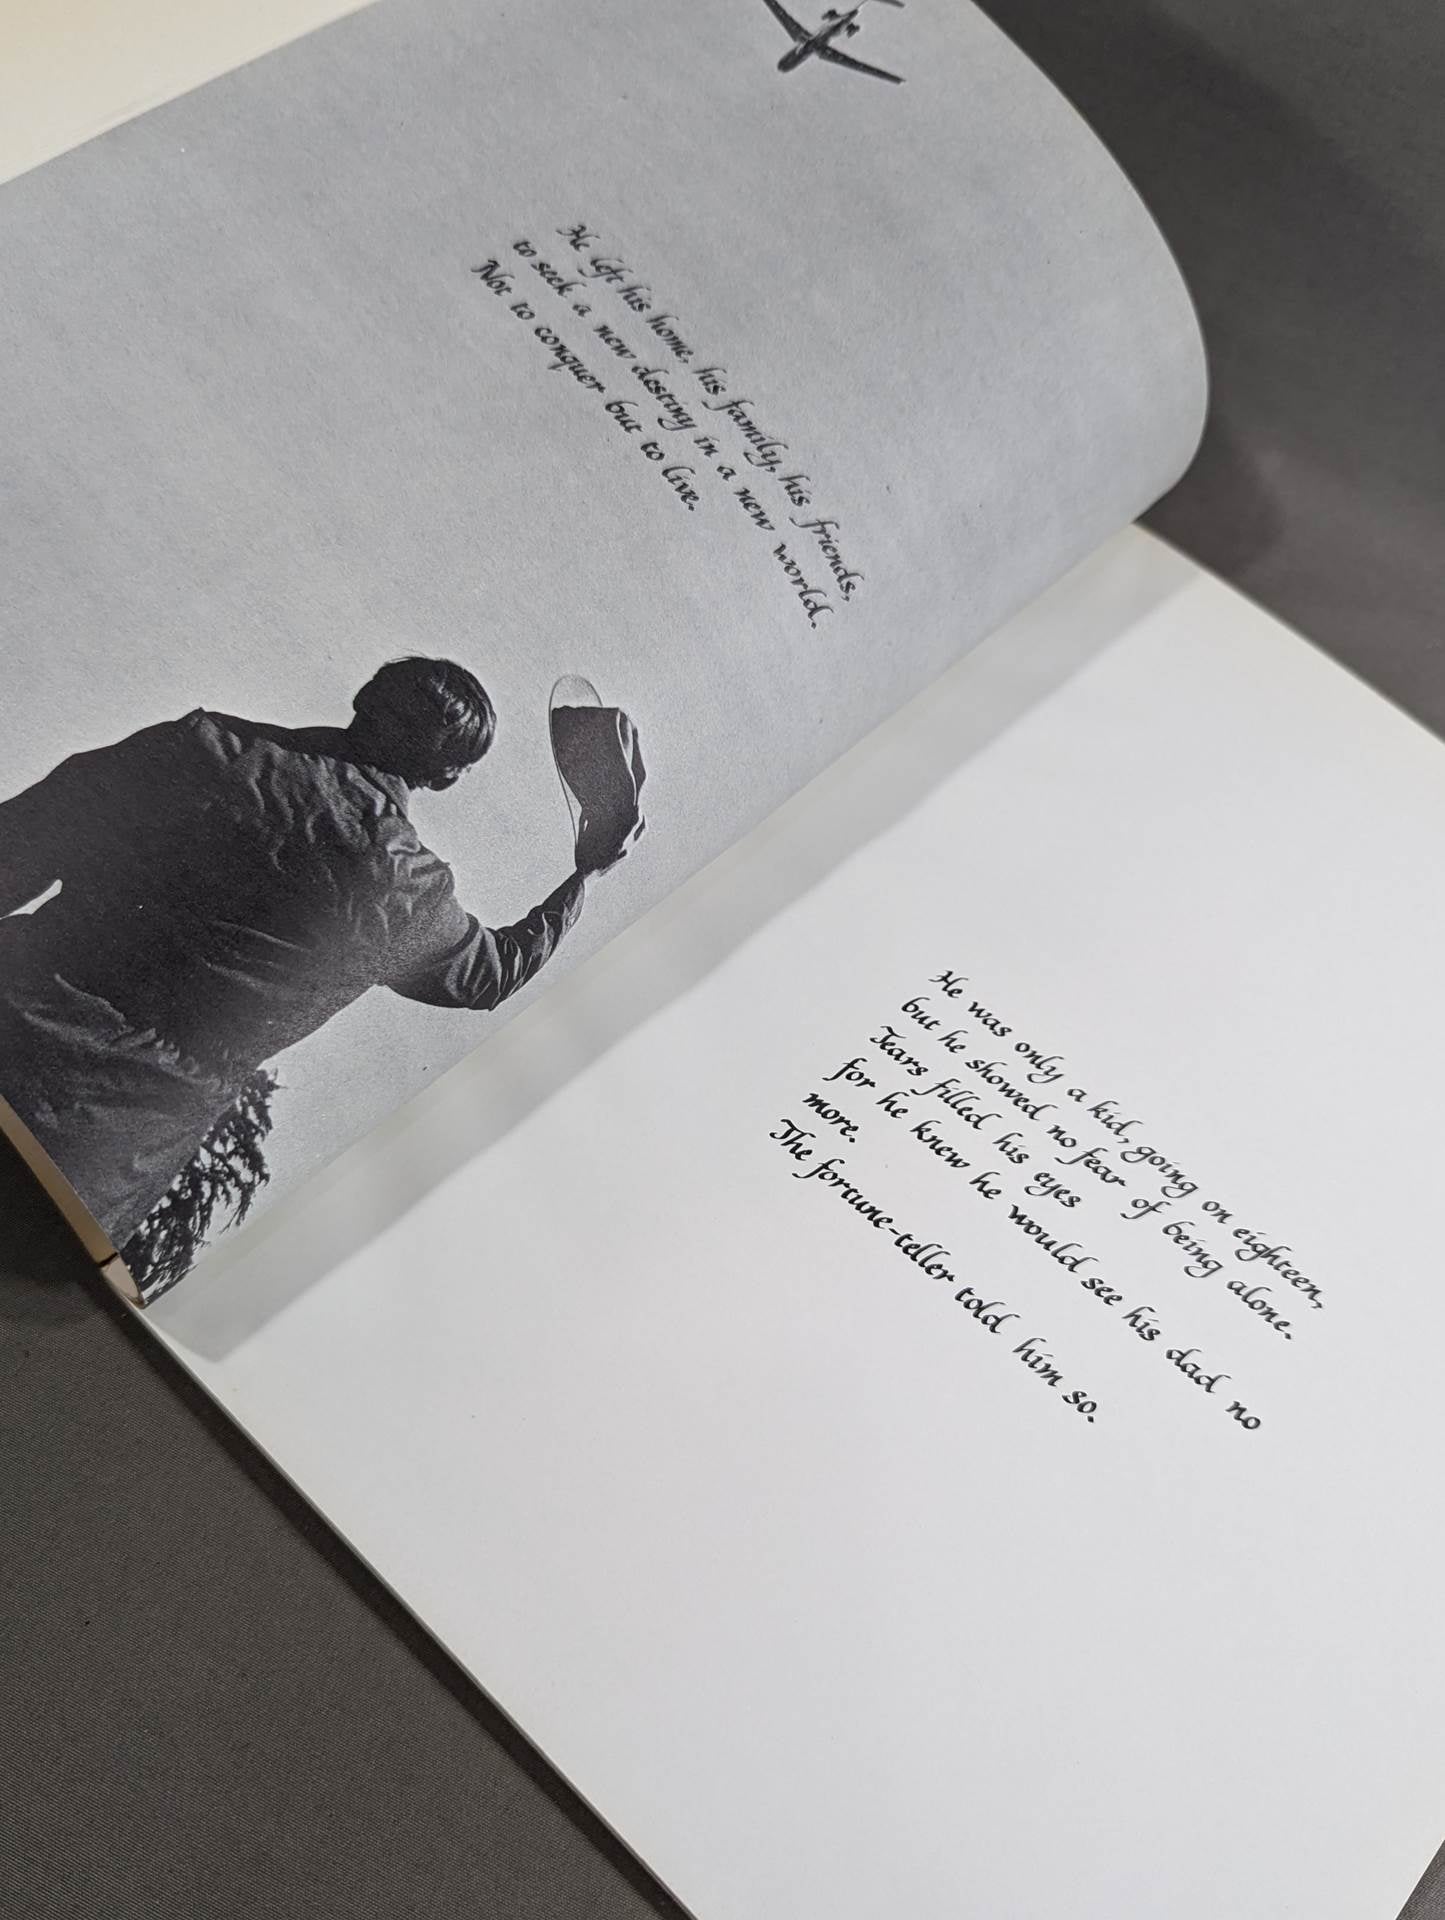 He left his home, his family, his friends,
to seek a new destiny in a new world.
Not to conquer but to live.
He was only a kid, going on eighteen,
but he showed no fear of being alone.
Tears filled his eyes
for he knew he would see his dad no
more.
The fortune-teller told him so.